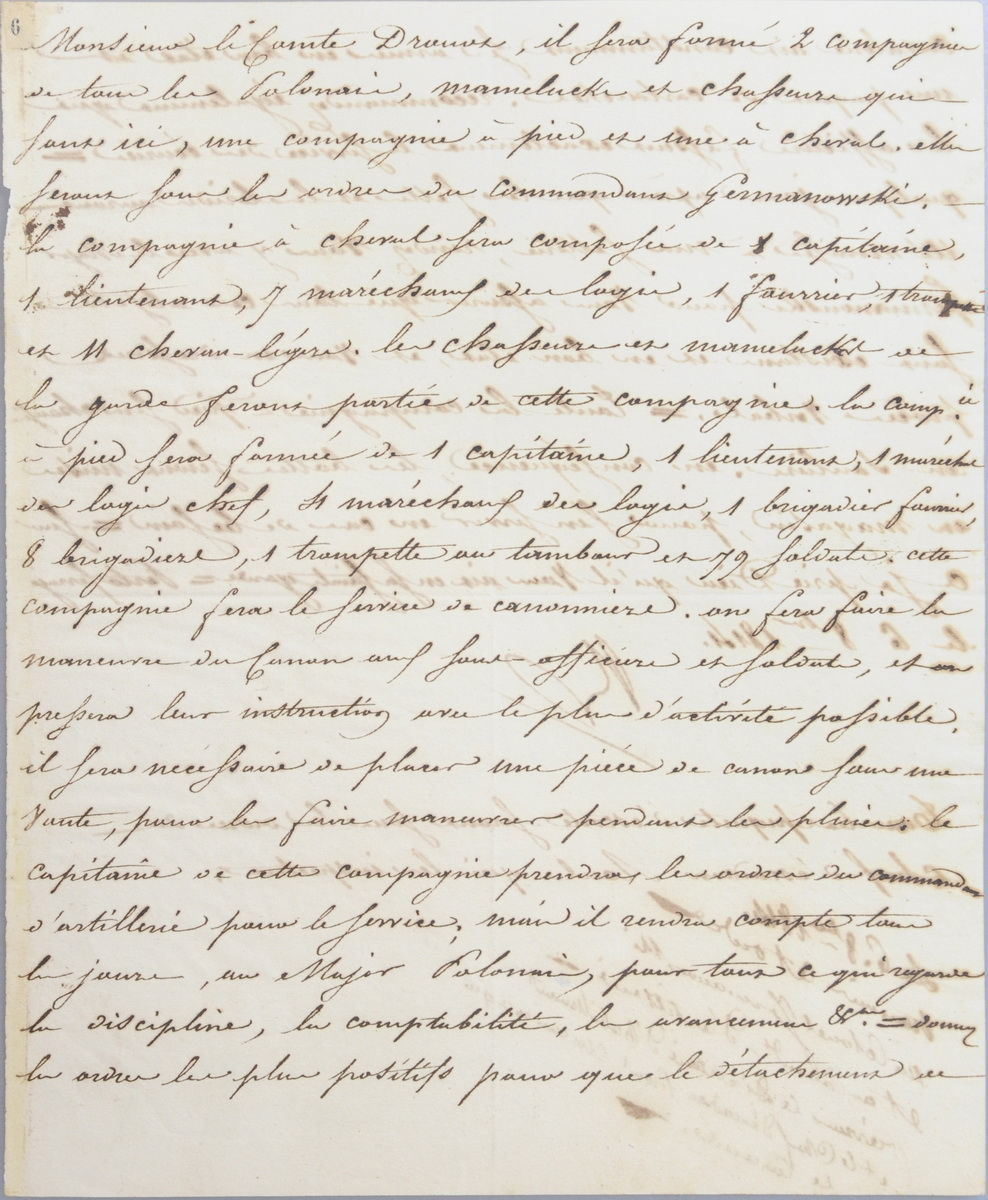 6
Monsieur le Comte Drouot, il sera formé 2 compagnies
de tous les Polonais, mamelucks et chasseurs qui
sont ici, une compagnie à pied et une à cheval. elles
seront sous les ordres du commandant Germanowski.
la compagnie à cheval sera composée de 1 capitaine,
1 lieutenant, 7 maréchaux des logis, 1 fourrier, 1 trompette
et 11 chevau-légers. les chasseurs et mamelucks de
la garde feront partie de cette compagnie. la comp.ie
à pied sera formée de 1 capitaine, 1 lieutenant, 1 maréchal
des logis chef, 4 maréchaux des logis, 1 brigadier fourrier,
8 brigadiers, 1 trompette ou tambour et 79 soldats. cette
compagnie fera le service de canonniers. on fera faire la
maneuvre du Canon aux sous-officiers et soldats, et on
pressera leur instruction avec le plus d'activité possible.
il sera nécéssaire de placer une piéce de canon sous une
Voute, pour les faire maneuvrer pendant les pluies. le
capitaine de cette compagnie prendra les ordres du commandant
d'artillerie pour le service, mais il rendra compte tous
les jours, au Major Polonais, pour tout ce qui regarde
la discipline, la comptabilité, les avancemens &c.a = donnez
les ordres les plus positifs pour que le détachement de